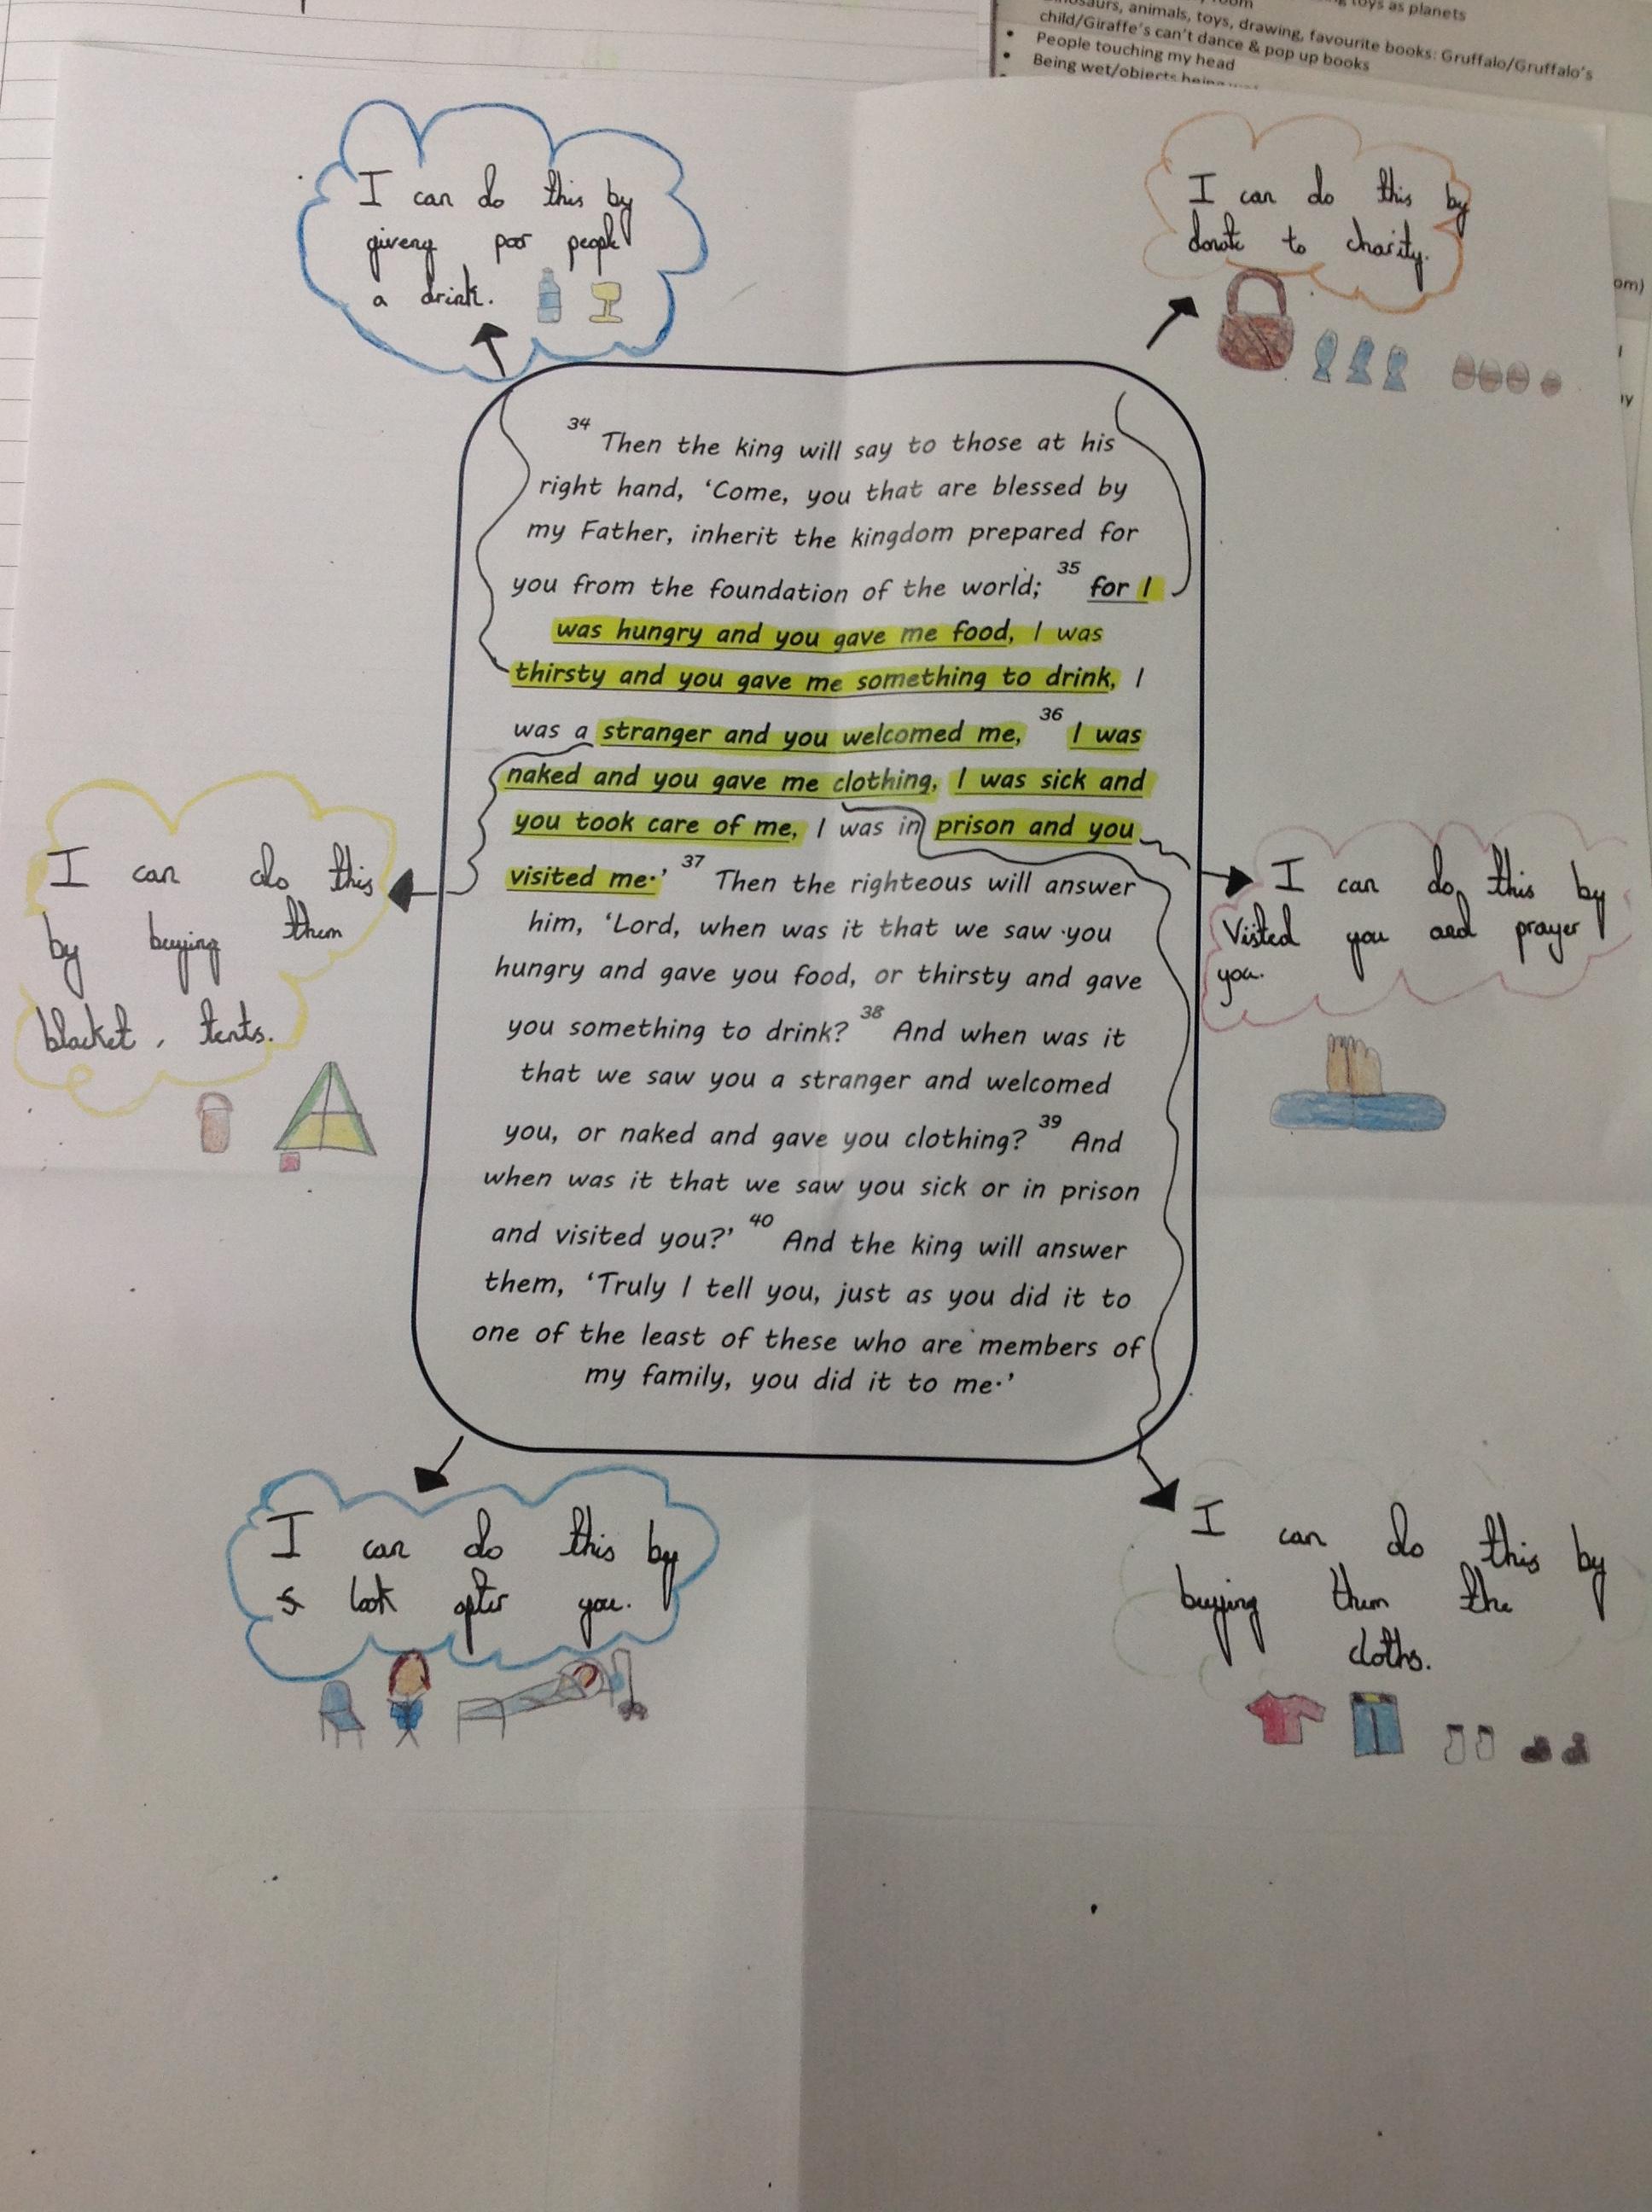 toys as planets
animals, toys, drawing, favourite books: Gruffalo/Gruffalo's
child/Giraffe's can't dance & pop up books
People touching my head
Being wet/objects being
I can do this by
giveng poor people
a drink.
I can do this by
donate to charity.
34 Then the king will say to those at his
right hand, 'Come, you that are blessed by
my Father, inherit the kingdom prepared for
you from the foundation of the world; 35 for I
was hungry and you gave me food, I was
thirsty and you gave me something to drink, I
was a stranger and you welcomed me, 36 I was
naked and you gave me clothing, I was sick and
you took care of me, I was in prison and you
visited me.' 37 Then the righteous will answer
him, 'Lord, when was it that we saw you
hungry and gave you food, or thirsty and gave
you something to drink? 38 And when was it
that we saw you a stranger and welcomed
you, or naked and gave you clothing? 39 And
when was it that we saw you sick or in prison
and visited you?' 40 And the king will answer
them, 'Truly I tell you, just as you did it to
one of the least of these who are members of
my family, you did it to me.'
I can do this
by buying them
blacket, tents.
I can do this by
Visited you and prayer
you.
I can do this by
look after you.
I can do this by
buying them the
cloths.